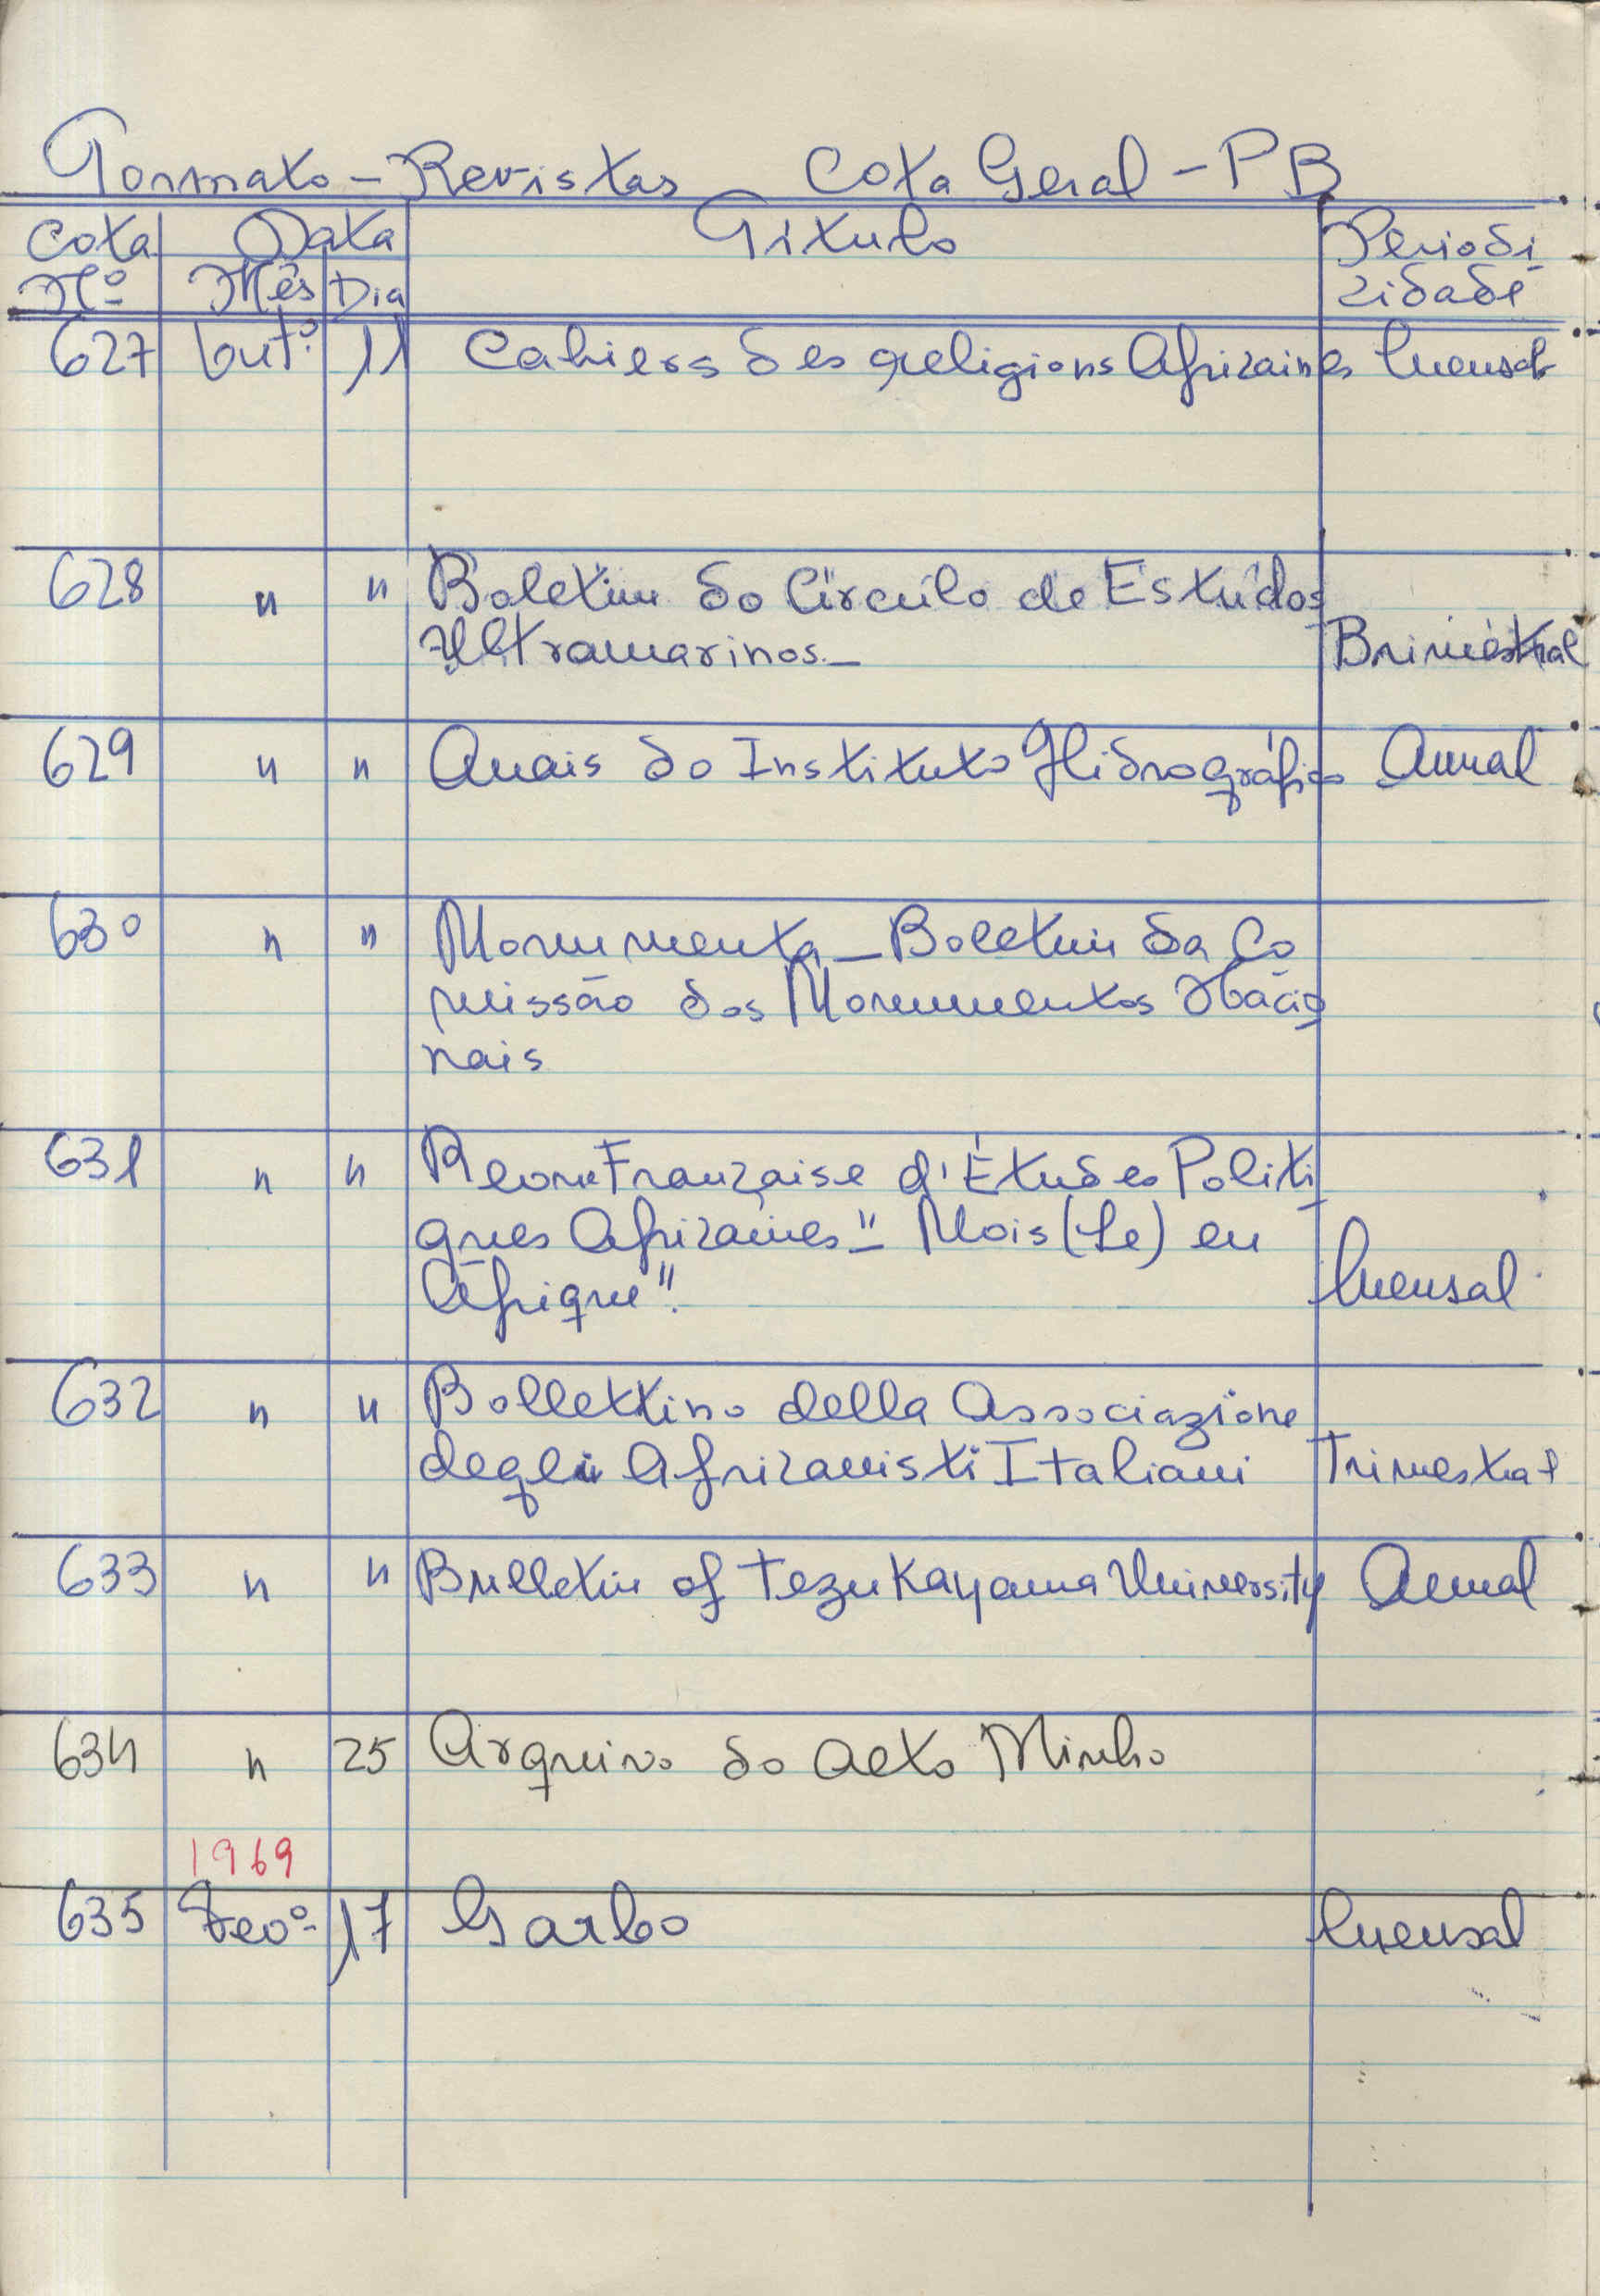 Formato - Revistas - Cota Geral - PB
Cota Data Titulo Periodi
Nº Mês Dia cidade
627 Outº 11 Cahiers des religions Africaines Mensal
628 " " Boletim do Círculo de Estudos
Ultramarinos. - Brimestral
629 " " Anais do Instituto Hidrográfico Anual
630 " " Monumenta - Boletim da Co
missão dos Monumentos Nacio
nais
631 " " Revue Française d'Études Politi
ques Africaines" - Mois (Le) en
Afrique". Mensal
632 " " Bollettino della Associazione
degli Africanisti Italiani Trimestral
633 " " Bulletin of Tezukayama University Anual
634 " 25 Arquivo do Alto Minho
1969
635 Fevº 17 Garbo Mensal